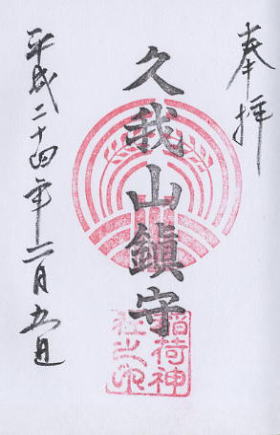 奉拝
久我山鎮守
稲荷神
社之印
平成二十四年六月九日